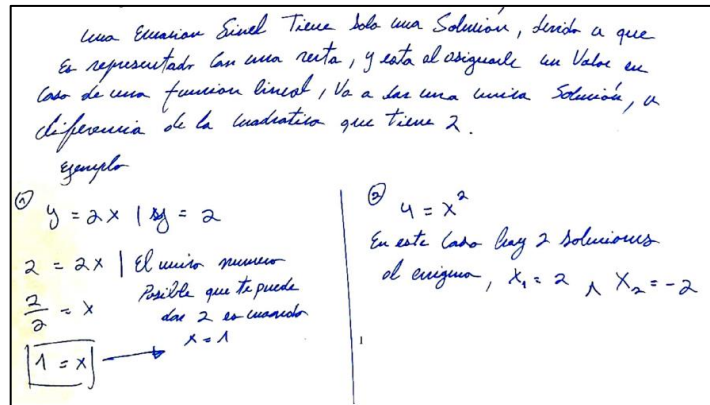 una Ecuacion Lineal Tiene Solo una Solución, devido a que
Es representado Con una recta, y esta al asignarle un Valor en
Caso de una funcion lineal, Va a dar una unica Solución, a
diferencia de la cuadratica que tiene 2.
Ejemplo
① y = 2x | y = 2
2 = 2x | El unico numero
Posible que te puede
dar 2 es cuando
x = 1
2/2 = x
1 = x
② 4 = x²
En este Caso hay 2 soluciones
al enigma, x₁ = 2 ∧ x₂ = -2